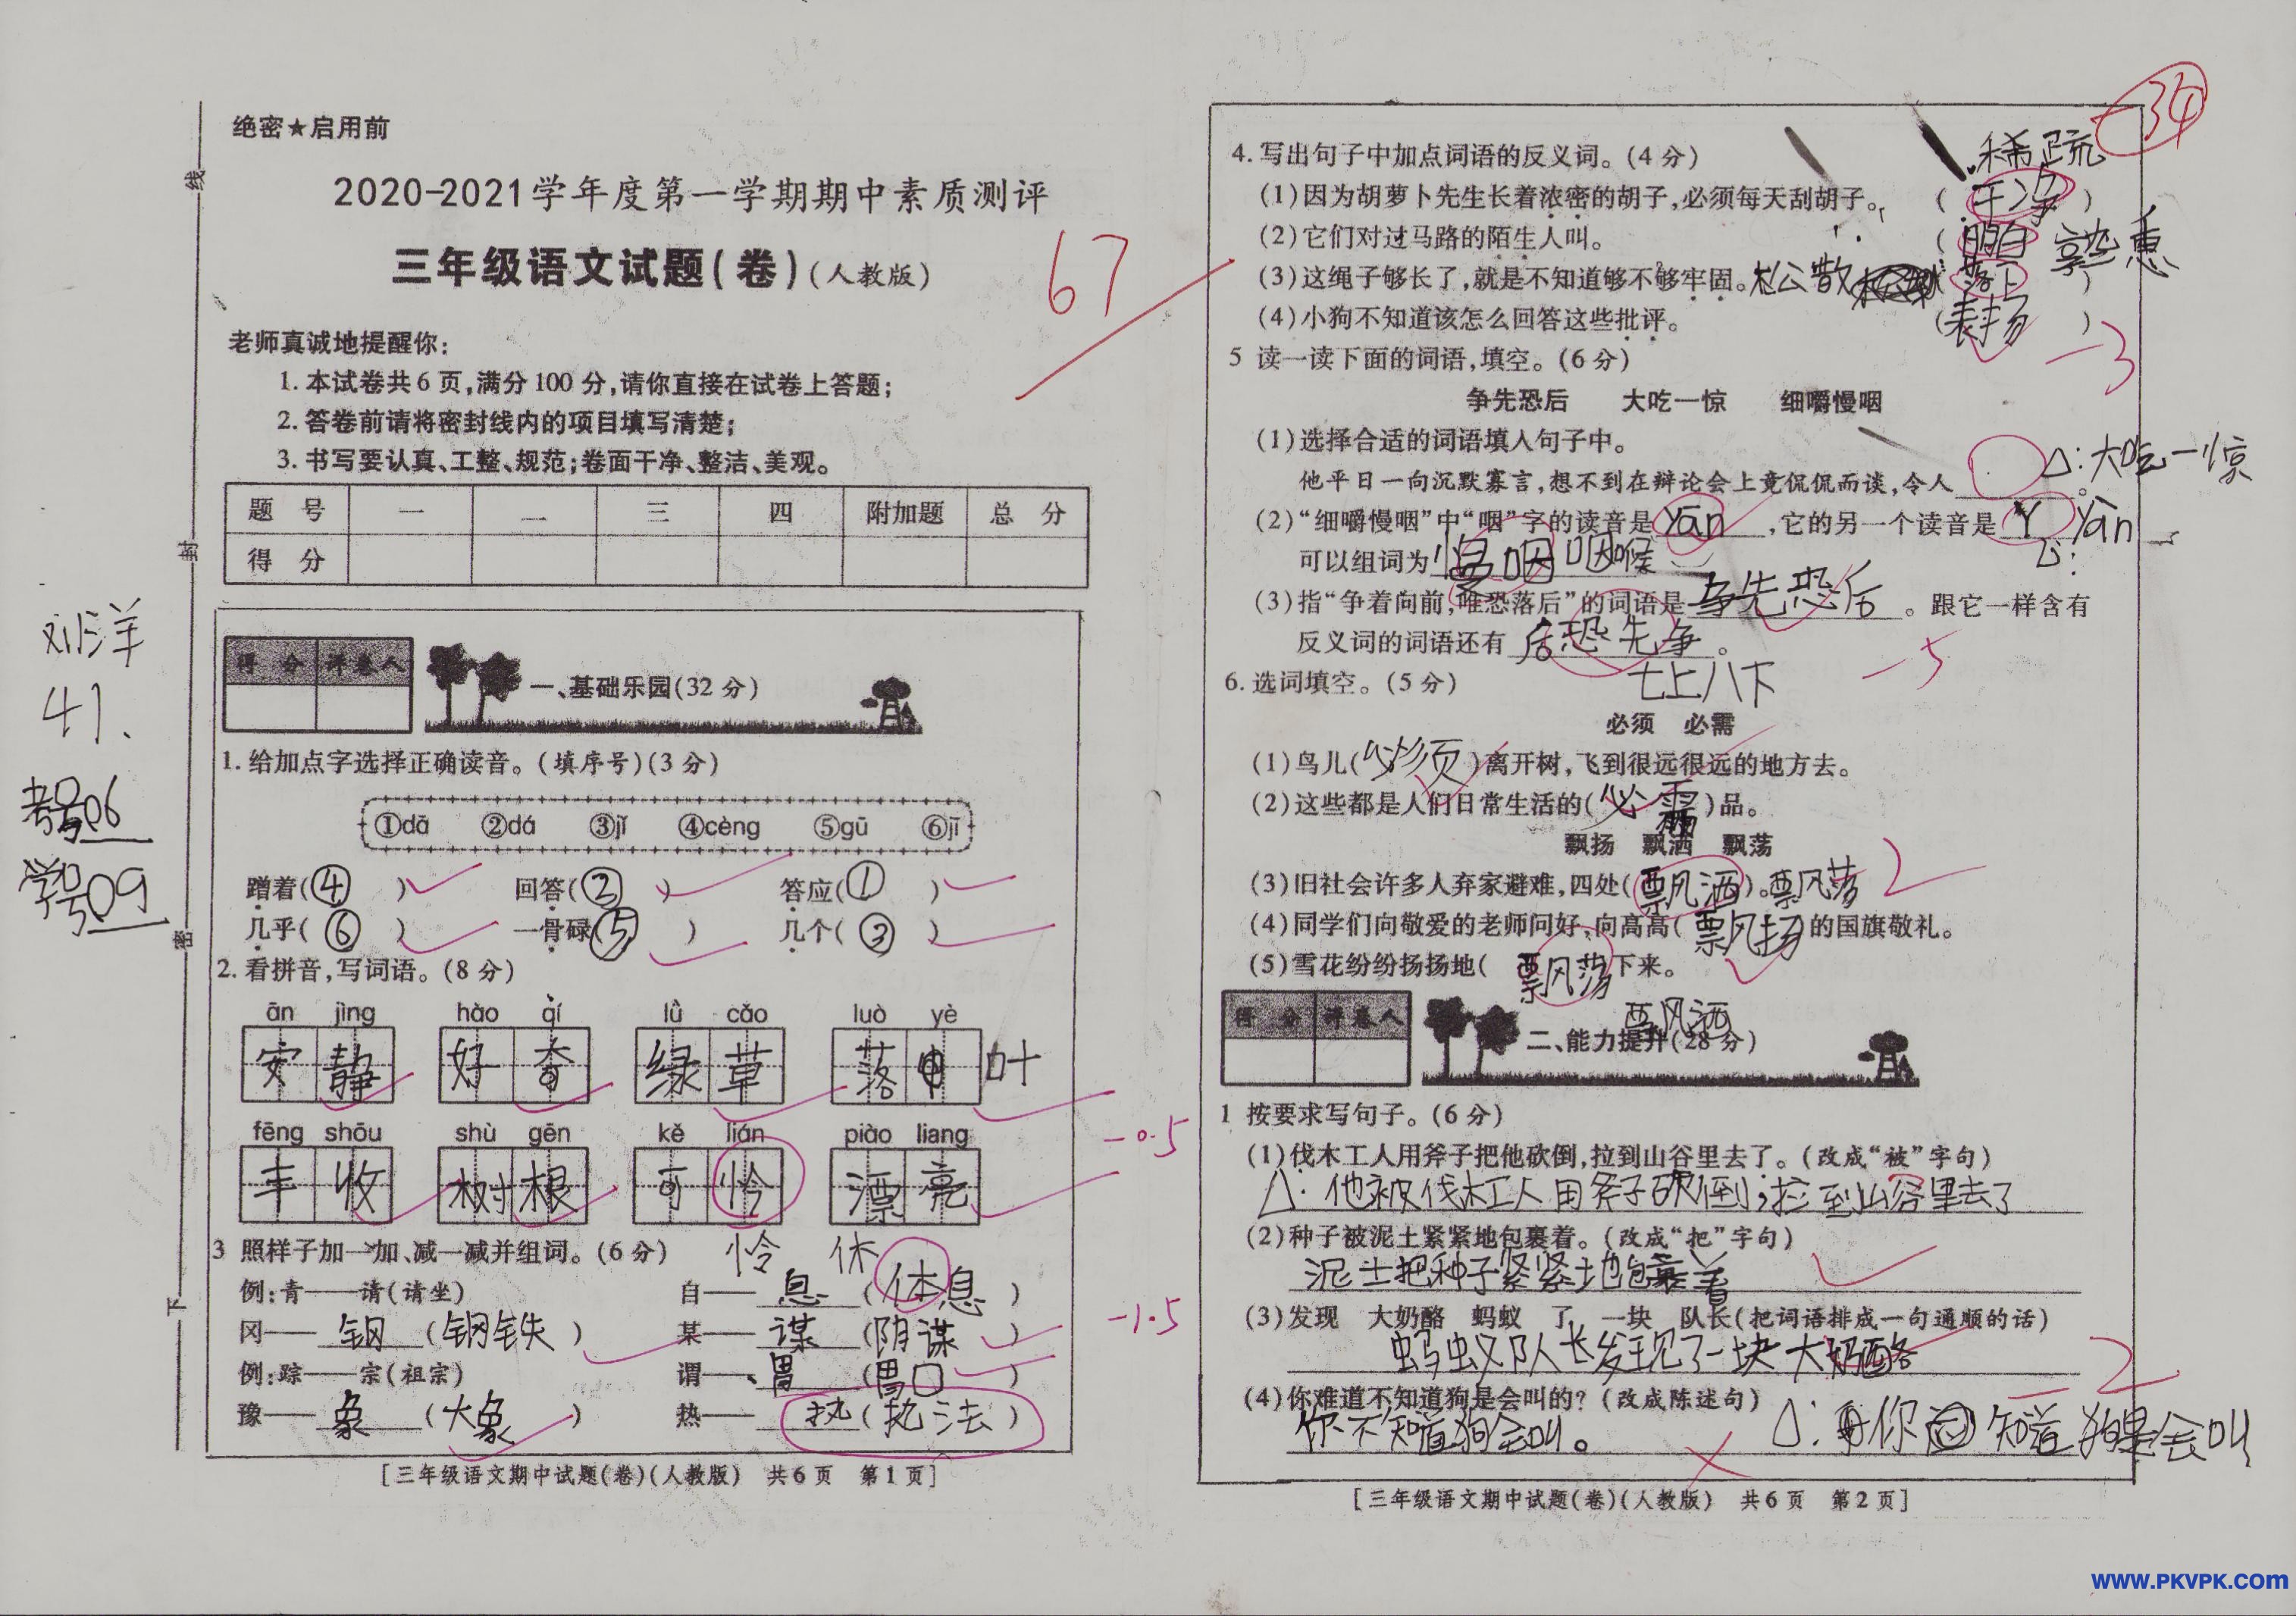 绝密★启用前
2020-2021学年度第一学期期中素质测评
三年级语文试题(卷)(人教版)
67
老师真诚地提醒你:
1. 本试卷共6页,满分100分,请你直接在试卷上答题;
2. 答卷前请将密封线内的项目填写清楚;
3. 书写要认真、工整、规范;卷面干净、整洁、美观。
题 号 一 二 三 四 附加题 总 分
得 分
线
封
密
下
刘洋
41.
考号06
学号09
得 分 评卷人
一、基础乐园(32分)
1. 给加点字选择正确读音。(填序号)(3分)
①dā ②dá ③jǐ ④cèng ⑤gū ⑥jī
蹭着(④) 回答(②) 答应(①)
几乎(⑥) 一骨碌(⑤) 几个(③)
2. 看拼音,写词语。(8分)
ān jìng hào qí lǜ cǎo luò yè
安静 好奇 绿草 落 叶
fēng shōu shù gēn kě lián piào liang
-0.5
丰收 树根 可怜 漂亮
3 照样子加一加、减一减并组词。(6分)
怜 休
例:青——请(请坐) 自——息(体息)
冈——钢(钢铁) 某——谋(阴谋)
-1.5
例:踪——宗(祖宗) 谓——胃(胃口)
豫——象(大象) 热——执(执法)
[三年级语文期中试题(卷)(人教版) 共6页 第1页]
-34
4. 写出句子中加点词语的反义词。(4分)
稀疏
(1)因为胡萝卜先生长着浓密的胡子,必须每天刮胡子。(干净)
(2)它们对过马路的陌生人叫。(明白)
(3)这绳子够长了,就是不知道够不够牢固。松散
(4)小狗不知道该怎么回答这些批评。(表扬)
-3
5 读一读下面的词语,填空。(6分)
争先恐后 大吃一惊 细嚼慢咽
(1)选择合适的词语填入句子中。
他平日一向沉默寡言,想不到在辩论会上竟侃侃而谈,令人 。
△:大吃一惊
(2)“细嚼慢咽”中“咽”字的读音是yàn,它的另一个读音是Y yān
可以组词为慢咽 咽喉
(3)指“争着向前,唯恐落后”的词语是争先恐后。跟它一样含有
反义词的词语还有后恐先争。
-5
七上八下
6. 选词填空。(5分)
必须 必需
(1)鸟儿(必须)离开树,飞到很远很远的地方去。
(2)这些都是人们日常生活的(必需)品。
飘扬 飘洒 飘荡
(3)旧社会许多人弃家避难,四处(飘洒)。飘荡
2
(4)同学们向敬爱的老师问好,向高高(飘扬)的国旗敬礼。
(5)雪花纷纷扬扬地(飘荡下来。
飘洒
得 分 评卷人
二、能力提升(28分)
1 按要求写句子。(6分)
(1)伐木工人用斧子把他砍倒,拉到山谷里去了。(改成“被”字句)
△:他被伐木工人用斧子砍倒,拉到山谷里去了
(2)种子被泥土紧紧地包裹着。(改成“把”字句)
泥土把种子紧紧地包裹着
(3)发现 大奶酪 蚂蚁 了 一块 队长(把词语排成一句通顺的话)
蚂蚁队长发现了一块大奶酪
-2
(4)你难道不知道狗是会叫的?(改成陈述句)
你不知道狗会叫。 △: 你 知道狗是会叫
[三年级语文期中试题(卷)(人教版) 共6页 第2页]
www.PKVPK.com